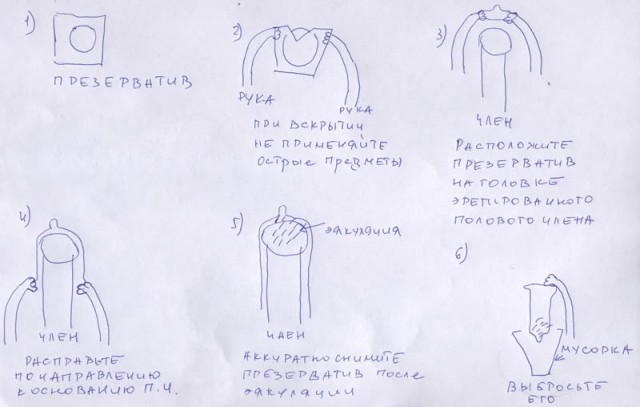 1)
ПРЕЗЕРВАТИВ
2)
РУКА
РУКА
ПРИ ВСКРЫТИИ
НЕ ПРИМЕНЯЙТЕ
ОСТРЫЕ ПРЕДМЕТЫ
3)
ЧЛЕН
РАСПОЛОЖИТЕ
ПРЕЗЕРВАТИВ
НА ГОЛОВКЕ
ЭРЕГИРОВАННОГО
ПОЛОВОГО ЧЛЕНА
4)
ЧЛЕН
РАСПРАВЬТЕ
ПО НАПРАВЛЕНИЮ
К ОСНОВАНИЮ П.Ч.
5)
ЭЯКУЛЯЦИЯ
ЧЛЕН
АККУРАТНО СНИМИТЕ
ПРЕЗЕРВАТИВ ПОСЛЕ
ЭЯКУЛЯЦИИ
6)
МУСОРКА
ВЫБРОСЬТЕ
ЕГО